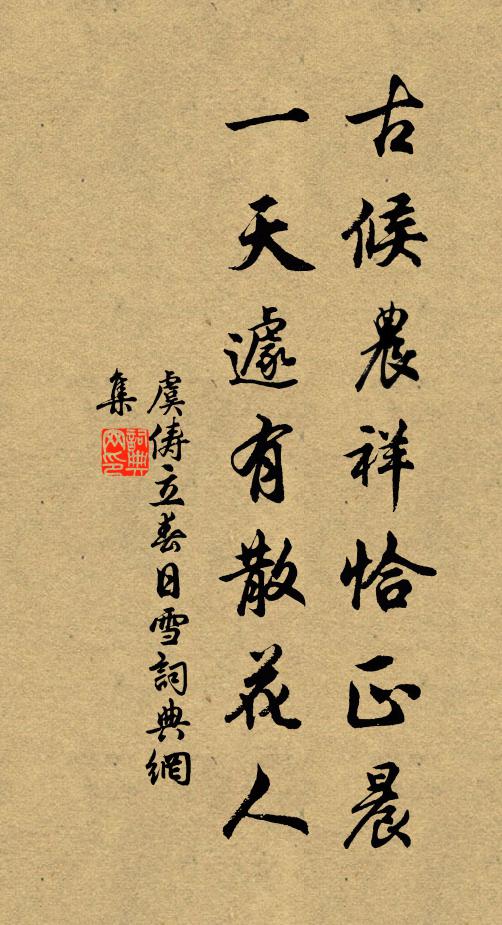 古候農祥恰正晨
一天遽有散花人
虞俦立春日雪詞典網
集
詞典
网印